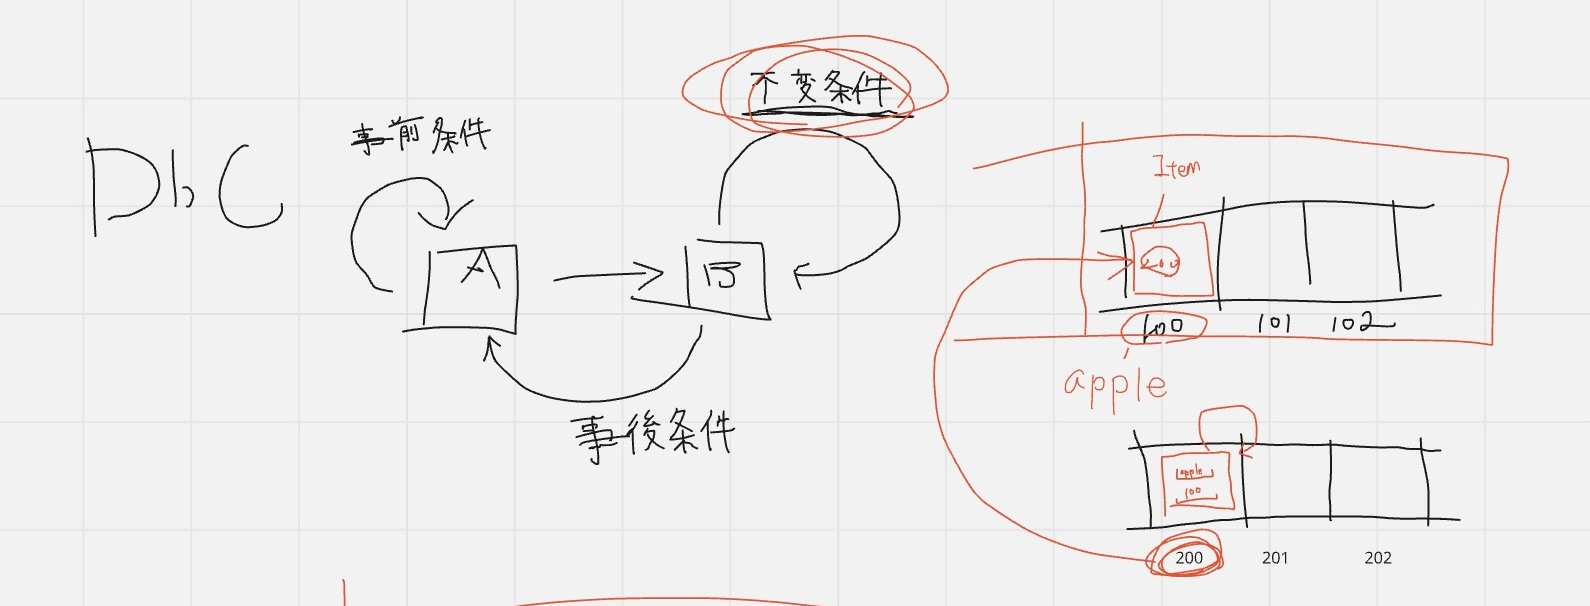 DbC
事前条件
不変条件
A
B
事後条件
Item
200
100
101
102
apple
apple
100
200
201
202